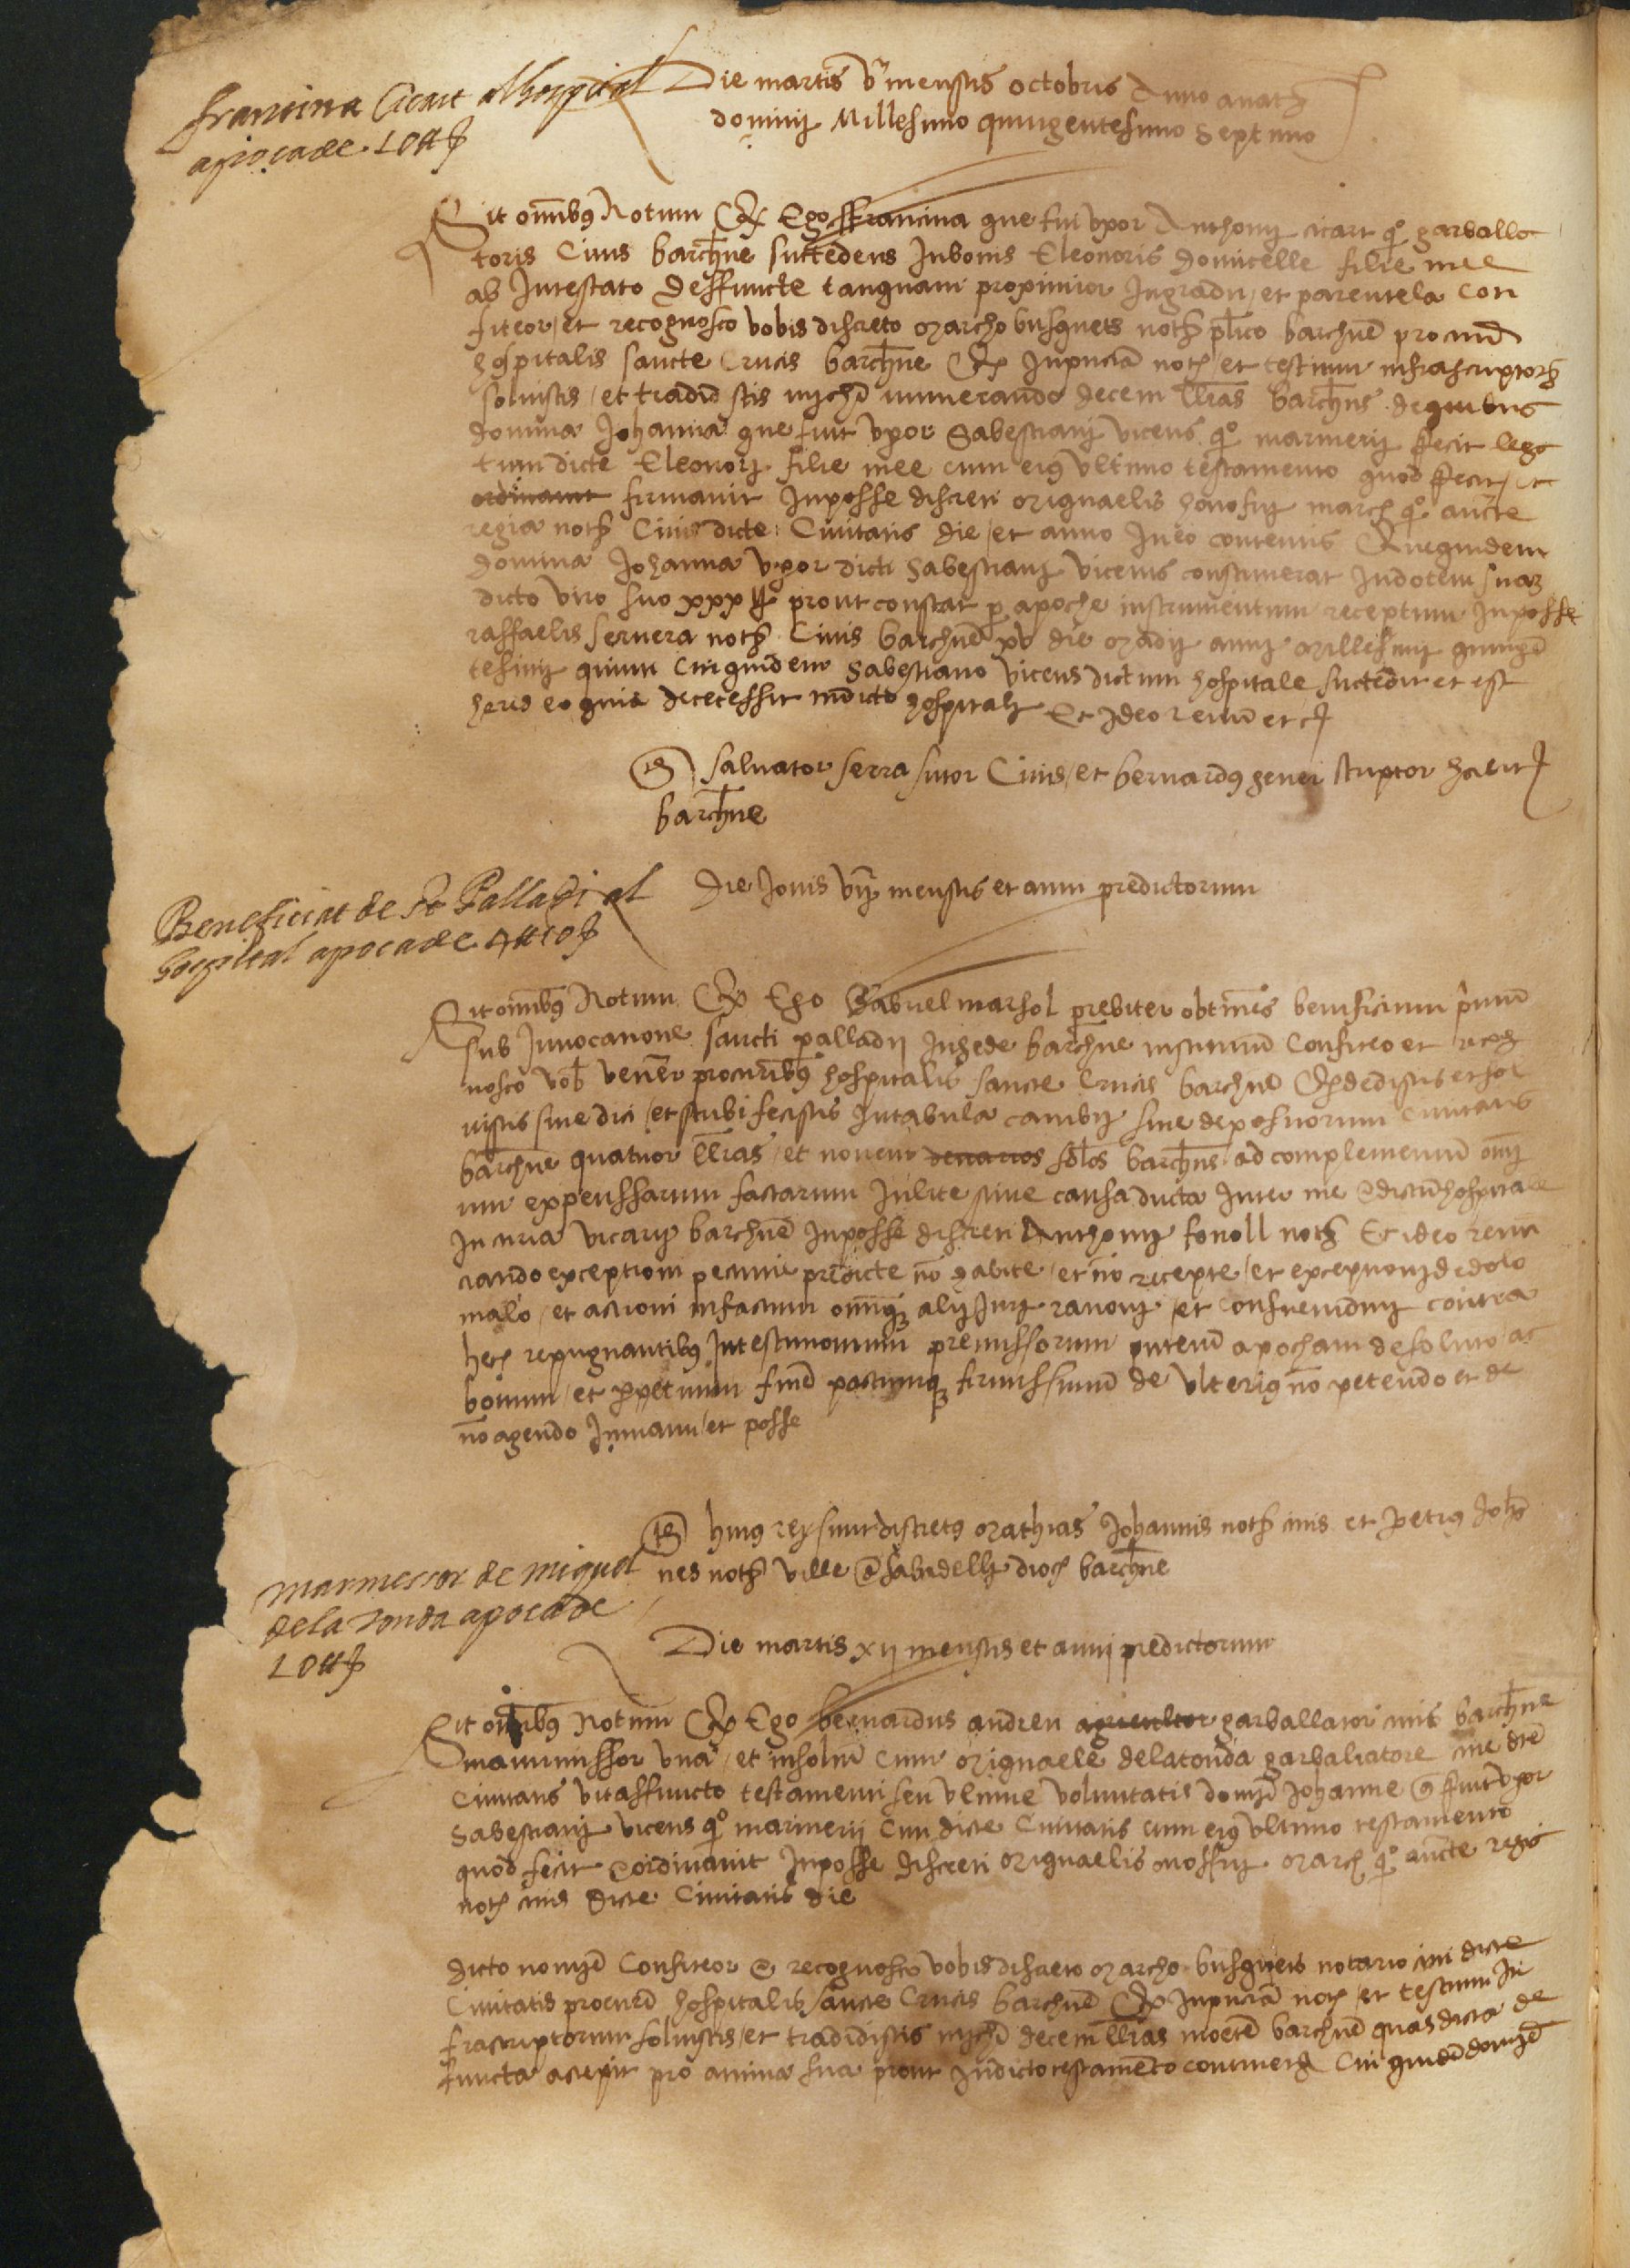 francina Cicart al hospital
apoca de 10 ₶
Die martis v mensis octobris Anno a nat
domini Millesimo quingentesimo septimo
Sit omibus Notum Q Ego ffrancina que fui uxor Anthonij cicart qº garballa
toris Civis barchne succedens In bonis Eleonoris domicelle filie mee
ab Intestato deffuncte tanquam proximior In gradu et parentela con
fiteor et recognosco vobis discreto Marcho busquets noth plico barchne procurd
hospitalis sancte Crucis barchne Q In pncia not et testium infrascriptor
solvistis et tradidistis michi numerando decem llras barchns de quibus
domina Johanna que fuit uxor Sabestiani vicens qº marinerij fecit lega
tum dicte Eleonori filie mee cum eius ultimo testamento quod fecit et
ordinavit firmavit In posse discreti Miquaelis march qº aucte
regia noth Civis dicte Civitatis die et anno In eo contentis Quequidem
domina Johanna uxor dicti Sabestiani vicens constituerat In dotem suam
dicto viro suo xxx ₶ prout constat p apoche instrumentum receptum In posse
raffaelis servera noth Civis barchne xv die Madij anni Millesimi quinge
tesimi quinti Cuiquidem Sabestiano vicens dictum hospitale succedit et est
heres eo quia decessit in dicto hospitali Et Ideo renu et c
ts Salvator serra sutor Civis et bernardus gener scriptor habit
barchne
Beneficiat de St Palladi al
hospital apoca de 4 ₶ 10
Die Jovis vij mensis et anni predictorum
Sit omibus Notum Q Ego Gabriel marsol prebiter obtines benificium primu
sub Invocatione sancti palladij In sede barchne institutu Confiteor et recog
nosco vob vener procuribus hospitalis sancte Crucis barchne Q dedistis et sol
vistis sive dici et scribi fecistis In tabula cambij sive depositorum Civitatis
barchne quatuor llras et novem denarios sdos barchns ad complementu omi
um expenssarum factarum In lite sive causa ducta Inter me et dictu hospitale
In curia vicarij barchne In posse discreti Anthonij fonoll noth Et ideo renu
ciando exceptioni pecunie predicte no habite et no recepte et exceptioni de dolo
malo et actioni in factum omiq alij Juri rationi et consuetudini contra
hec repugnantibus In testimonium premissorum presente apocham de soluto ac
bonum et ppetuum fine pactumq firmissimu de ulterius no petendo et de
no agendo In manu et posse
ts huius rey sunt discretus Mathias Johannis noth civis et Petrus Joha
nes noth ville de Sabidelli dioc barchne
Marmessor de Miquel
de la Tonda apoca de
10 ₶
Die martis xij mensis et anni predictorum
Sit omibus Notum Q Ego bernardus andreu agricultor garballator civis barchne
manumissor una et insolum cum Miquaele dela tonda garballatore cive dte
Civitatis vitaffuncto testamenti seu ultime voluntatis domine Johanne que fuit uxor
Sabestiani vicens qº marinerij Civis dicte Civitatis cum eius ultimo testamento
quod fecit et ordinavit In posse discreti Miquaelis march qº aucte regia
not civis dicte Civitatis die
dicto nomine Confiteor et recognosco vobis discreto Marcho busquets notario civi dicte
Civitatis procurd hospitalis sancte Crucis barchne Q In pncia not et testium In
frascriptorum solvistis et tradidistis michi decem llras monete barchne quas dicta de
functa accepit pro anima sua prout In dicto testamento continetur Cui quide domine